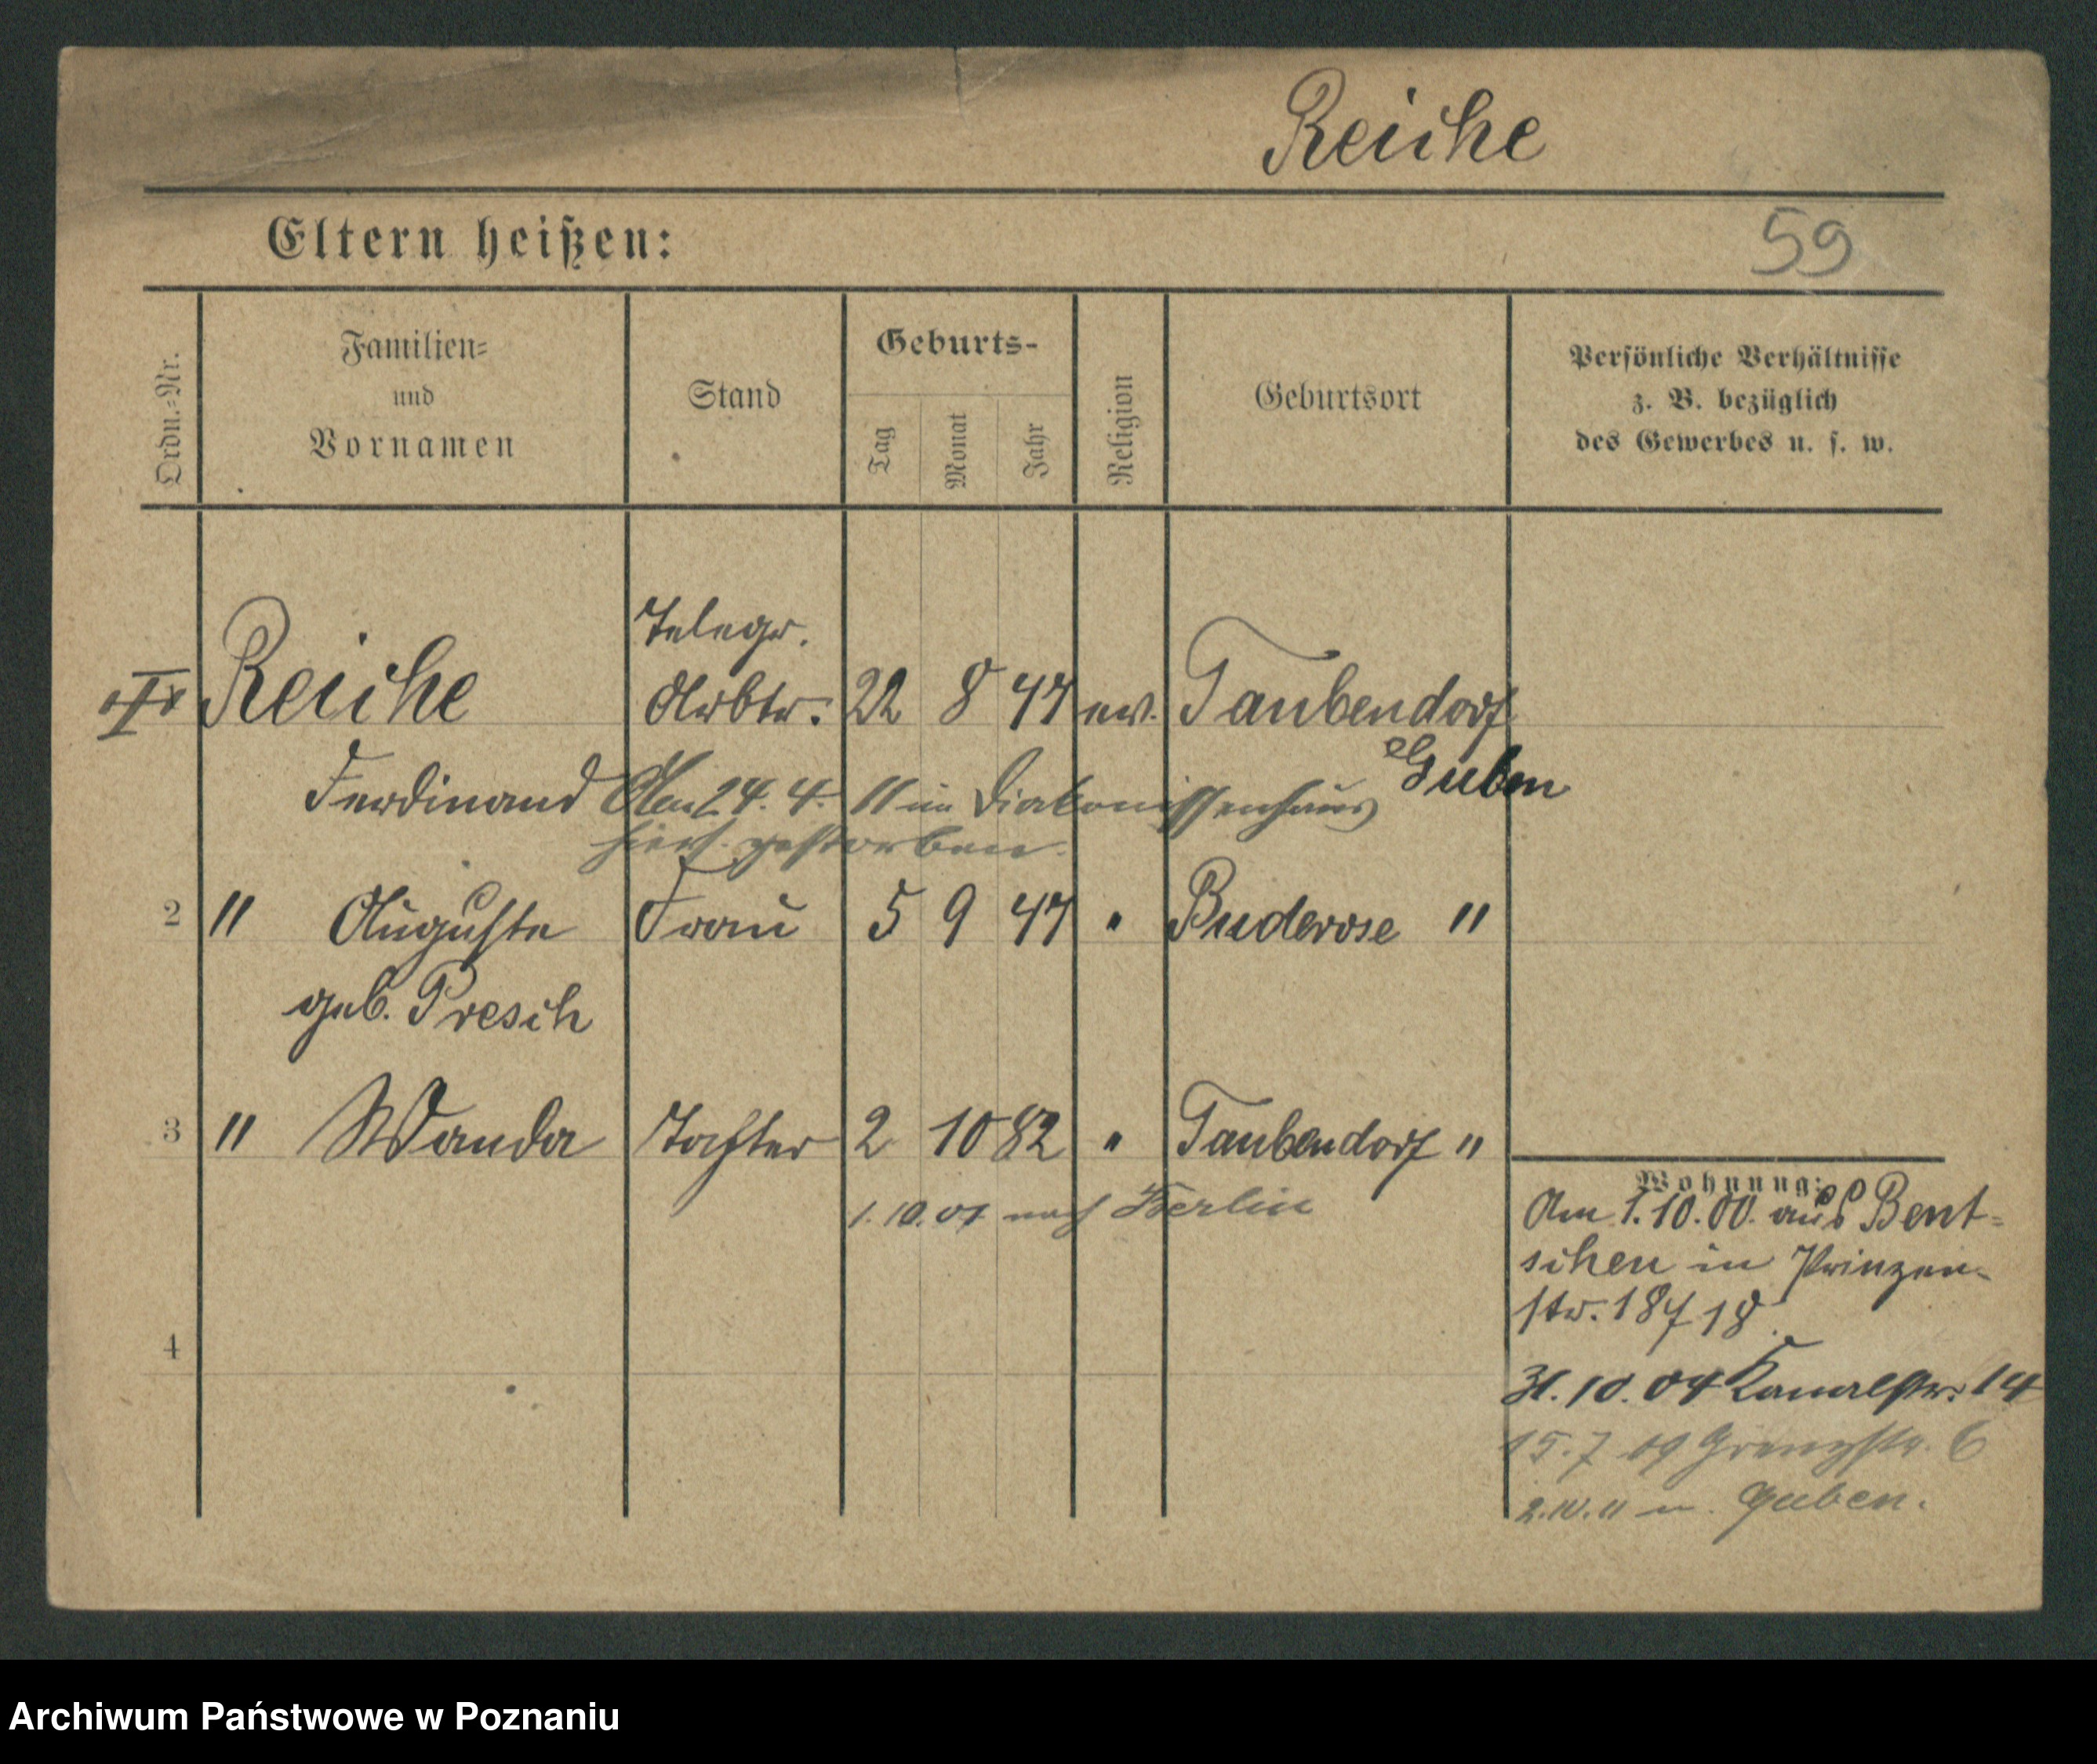 Reiche
Eltern heißen:
59
Ordn.-Nr.
Familien-
und
Vornamen
Stand
Geburts-
Tag
Monat
Jahr
Religion
Geburtsort
Persönliche Verhältnisse
z. B. bezüglich
des Gewerbes u. s. w.
Telegr.
Reiche Arbtr. 22 8 47 ev. Taubendorf
Guben
Ferdinand Am 24. 4. 11 im Diakonissenhaus
hies. gestorben.
2 " Auguste Frau 5 9 47 " Buderose "
geb. Presch
3 " Wanda Tochter 2 10 82 " Taubendorf "
1. 10. 01 nach Berlin
4
Wohnung:
Am 1. 10. 00. aus Bent-
schen in Prinzen-
str. 18
31. 10. 04 Kanalstr. 14
15. 7 09 Grenzstr. 6
2. IV. 11 n. Guben.
Archiwum Państwowe w Poznaniu